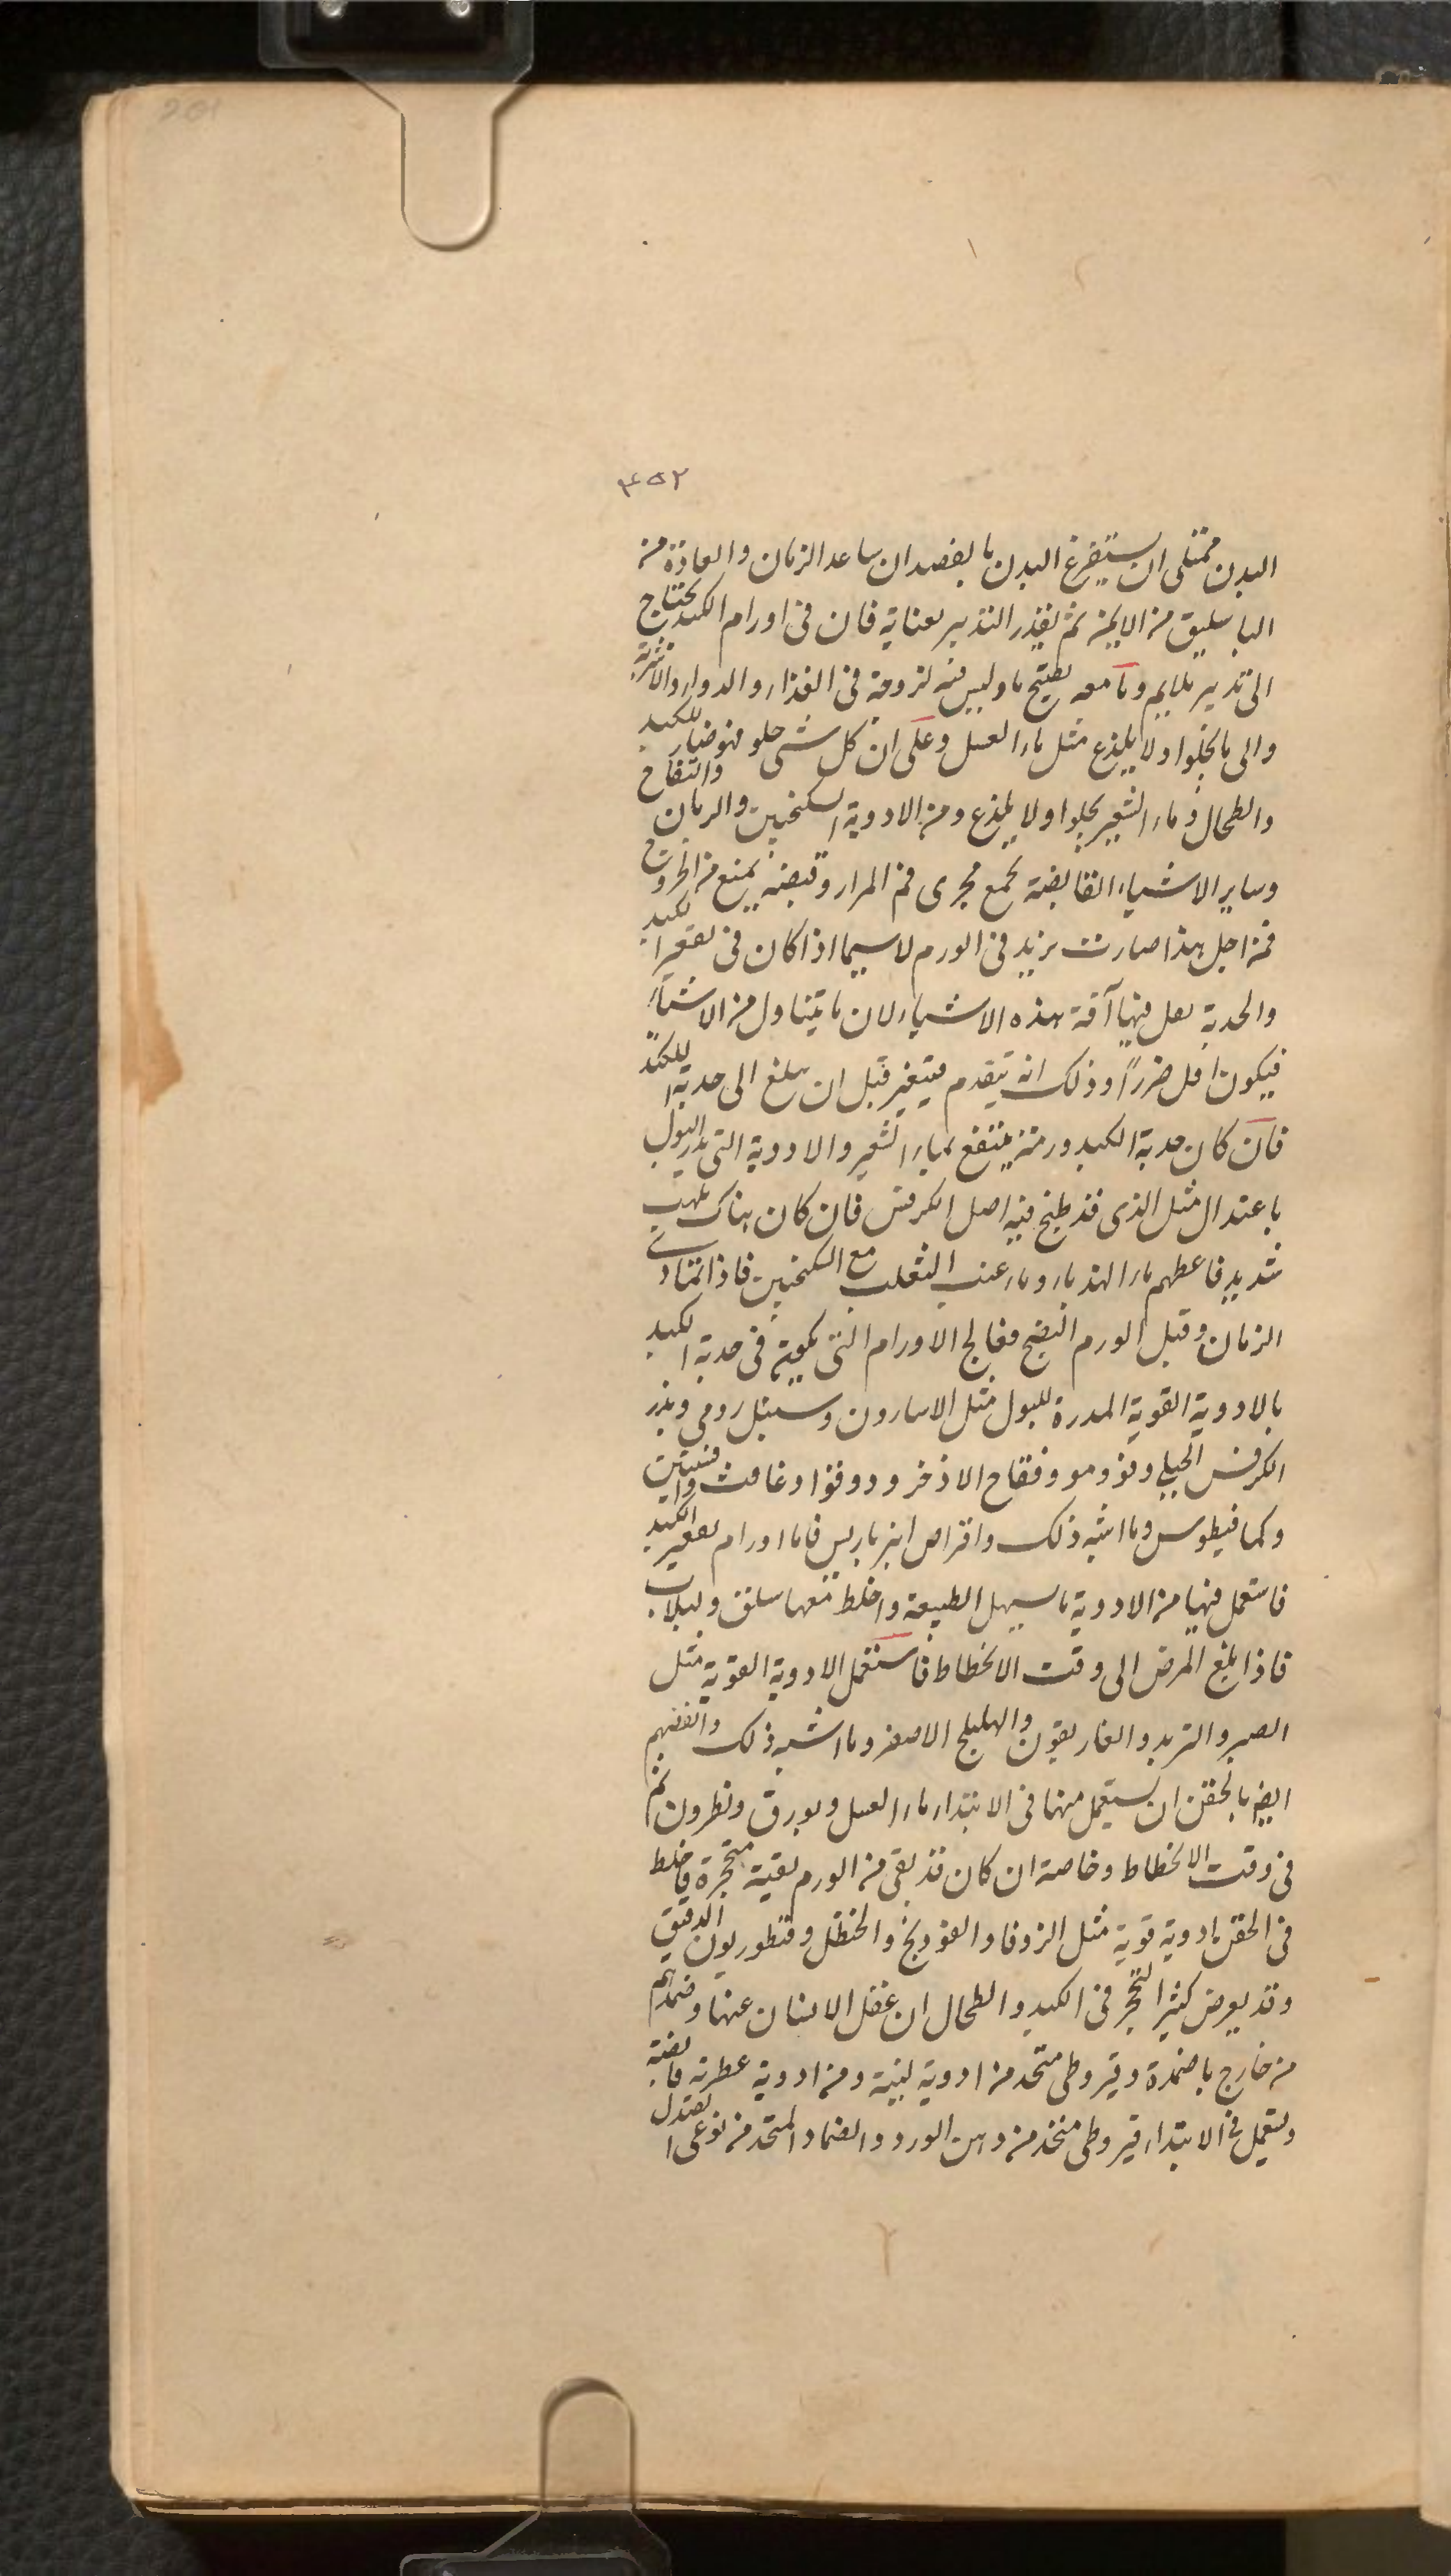 201
٤٥٢
البدن ممتلى ان يستفرغ البدن بالفصد ان ساعد الزمان والعادة من
الباسليق من الايمن ثم بقدر التدبير بعناية فان فى اورام الكبد يحتاج
الى تدبير ملايم وما معه تفتيح ما وليس فيه لزوجة فى الغذاء والدواء والاشربة
والى ما يجلوا ولا يلذع مثل ماء العسل وعلى ان كل شى حلو فهو ضار للكبد
والطحال وماء الشعير يجلوا ولا يلذع ومن الادوية السكنجبين والرمان والتفاح
وساير الاشياء القابضة تجمع مجرى فم المرار وتقبضه يمنع من الخروج
فمن اجل هذا صارت تزيد فى الورم لاسيما اذا كان فى تقعير الكبد
والحدبة يقل فيها آفة هذه الاشياء لان ما يتناول من الاشياء
فيكون اقل ضررا وذلك انه يتقدم فيتغير قبل ان يبلغ الى حدبة الكبد
فان كان حدبة الكبد ورمة ينتفع بماء الشعير والادوية التى تدر البول
باعتدال مثل الذى قد طبخ فيه اصل الكرفس فان كان هناك تلهب
شديد فاعطهم ماء الهندباء وماء عنب الثعلب مع السكنجبين فاذا تمادى
الزمان وقبل الورم النضج فعالج الاورام التى تكون فى حدبة الكبد
بالادوية القوية المدرة للبول مثل الاسارون وسنبل رومى وبزر
الكرفس الجبلى وفو ومو وفقاح الاذخر ودوقوا وغافث وافسنتين
وكمافيطوس وما اشبه ذلك واقراص انبرباريس فاما اورام تقعير الكبد
فاستعمل فيها من الادوية ما يسهل الطبيعة واخلط معها سلق ولبلاب
فاذا بلغ المرض الى وقت الانحطاط فاستعمل الادوية القوية مثل
الصبر والتربد والغاريقون والهليلج الاصفر وما اشبه ذلك وانفعهم
ايضا بالحقن ان يستعمل منها فى الابتداء ماء العسل وبورق ونطرون ثم
فى وقت الانحطاط وخاصة ان كان قد بقى من الورم بقية متحجرة فاخلط
فى الحقن ادوية قوية مثل الزوفا والفودنج والحنظل وقنطوريون الدقيق
وقد يعرض كثيرا التحجر فى الكبد والطحال ان غفل الانسان عنها وضمدهم
من خارج باضمدة وقيروطى متخذ من ادوية لينة ومن ادوية عطرية قابضة
وليستعمل فى الابتداء قيروطى متخذ من دهن الورد والضماد المتخذ من نوعى الصندل